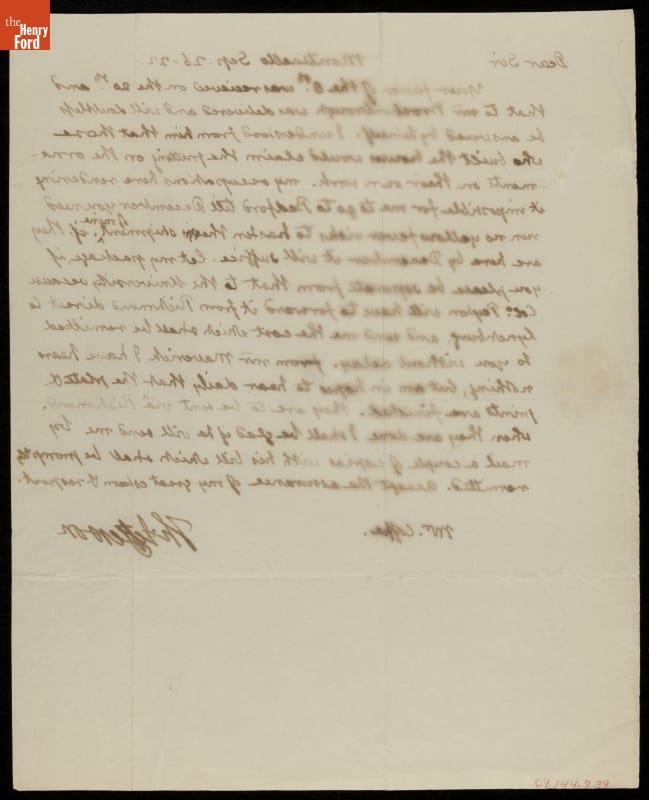 the
Henry
Ford
Dear Sir Monticello Sep. 26. 22.
Your favor of the 8th was received on the 20th and
that to mr Brockenbrough was delivered and will doubtless
be answered by himself. I understood from him that those
who built the houses would claim the putting on the orna-
ments as their own work. my occupations here rendering
it impossible for me to go to Bedford till December you need
run no yellow fever risks to hasten the shipment of mine, if they
are here by December it will suffice. let my package if
you please be separate from that to the University because
Colo. Peyton will have to forward it from Richmond direct to
Lynchburg. and send me the cost which shall be remitted
to you without delay. from mr Maverick I have heard
nothing, but am in hopes to hear daily that the plate &
prints are finished. they are to be sent viâ Richmond.
when they are done I shall be glad if he will send me by
mail a couple of copies with his bill which shall be promptly
remitted. accept the assurance of my great esteem & respect.
Th: Jefferson
Mr. Coffee.